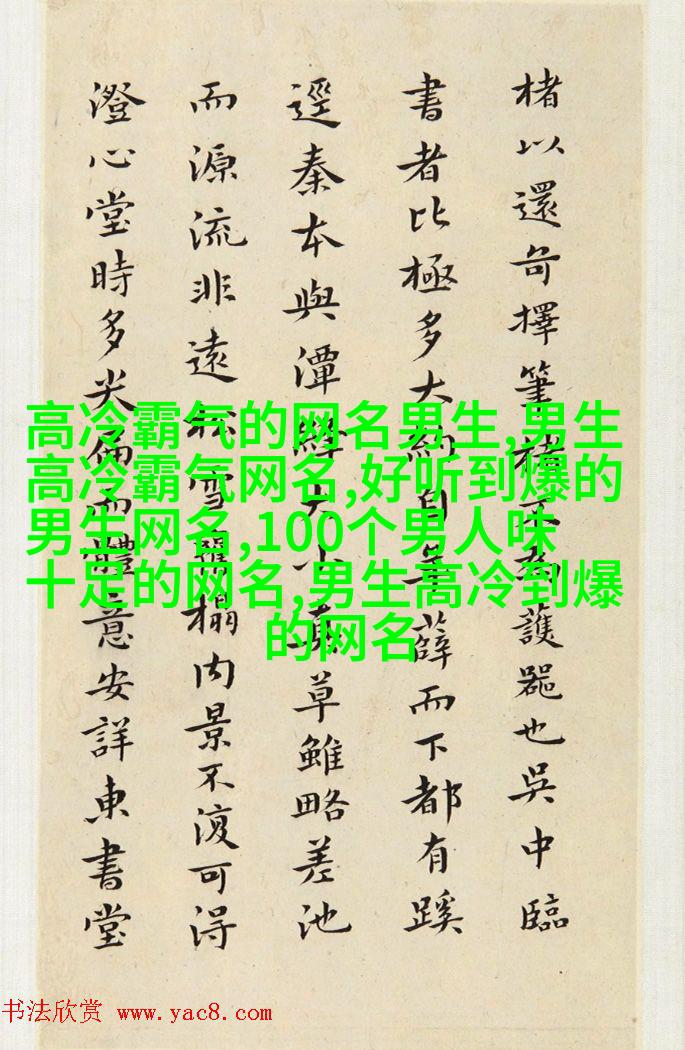 楮以還奇擇筆不護器也吳中臨
書者比極多大約自薛而下都有蹊
逕秦本與潭絳大小真草雖略差池
而源流非遠松雪榻内景不復可得
澄心堂時多尖偏而體意安詳東書堂
高冷霸气的网名男生,男生
高冷霸气网名,好听到爆的
男生网名,100个男人味
十足的网名,男生高冷到爆
的网名
书法欣赏 www.yac8.com